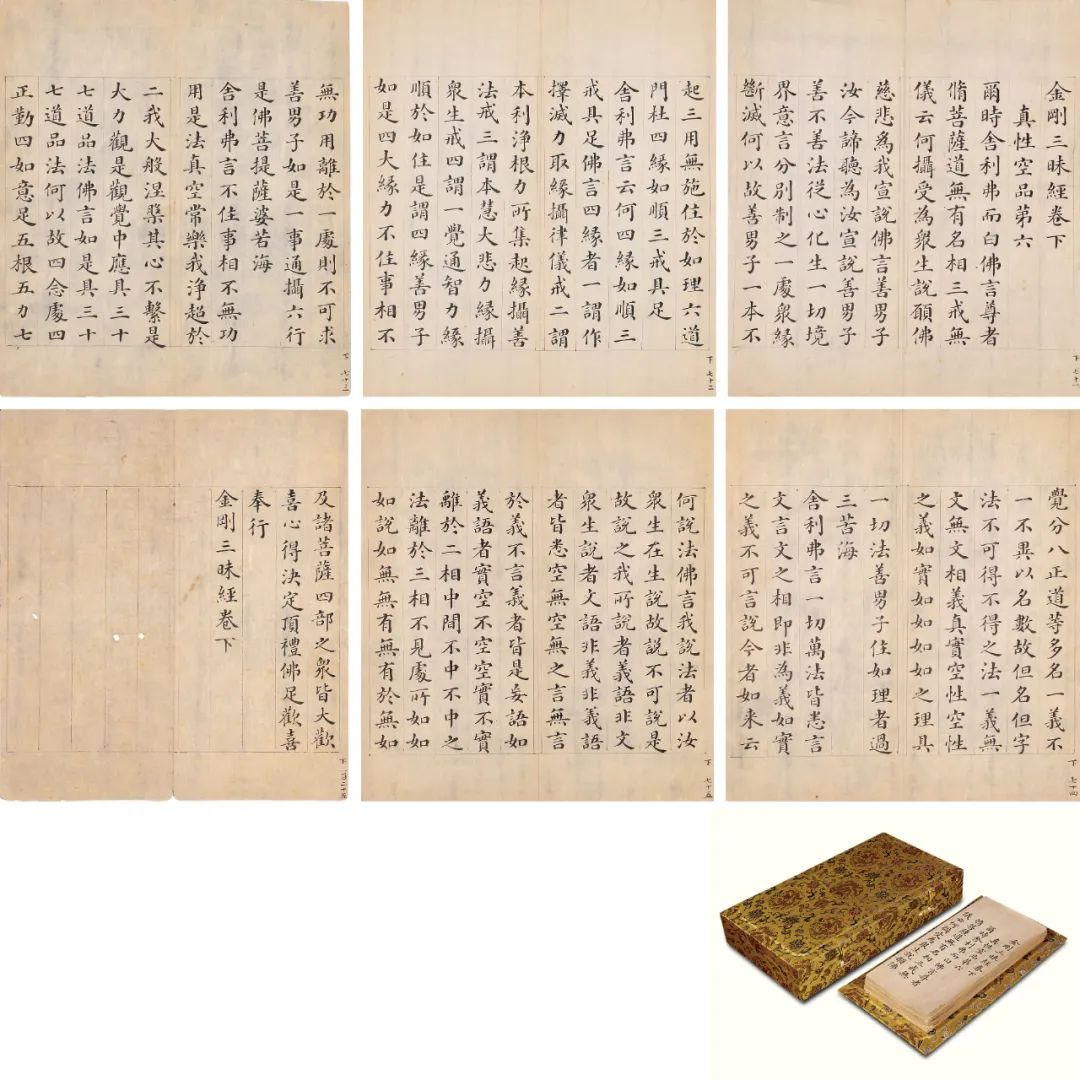 金剛三昧經卷下
真性空品第六
爾時舍利弗而白佛言尊者
脩菩薩道無有名相三戒無
儀云何攝受為衆生說願佛
慈悲為我宣說佛言善男子
汝今諦聽為汝宣說善男子
善不善法從心化生一切境
界意言分別制之一處衆緣
斷滅何以故善男子一本不
下 七十一
起三用無施住於如理六道
門杜四緣如順三戒具足
舍利弗言云何四緣如順三
戒具足佛言四緣者一謂作
擇滅力取緣攝律儀戒二謂
本利淨根力所集起緣攝善
法戒三謂本慧大悲力緣攝
衆生戒四謂一覺通智力緣
順於如住是謂四緣善男子
如是四大緣力不住事相不
下 七十二
無功用離於一處則不可求
善男子如是一事通攝六行
是佛菩提薩婆若海
舍利弗言不住事相不無功
用是法真空常樂我淨超於
二我大般涅槃其心不繫是
大力觀是觀覺中應具三十
七道品法佛言如是具三十
七道品法何以故四念處四
正勤四如意足五根五力七
下 七十三
覺分八正道等多名一義不
一不異以名數故但名但字
法不可得不得之法一義無
文無文相義真實空性空性
之義如實如如如如之理具
一切法善男子住如理者過
三苦海
舍利弗言一切萬法皆悉言
文言文之相即非為義如實
之義不可言說今者如來云
下 七十四
何說法佛言我說法者以汝
衆生在生說故說不可說是
故說之我所說者義語非文
衆生說者文語非義非義語
者皆悉空無空無之言無言
於義不言義者皆是妄語如
義語者實空不空空實不實
離於二相中間不中不中之
法離於三相不見處所如如
如說如無無有無有於無如
下 七十五
及諸菩薩四部之衆皆大歡
喜心得決定頂禮佛足歡喜
奉行
金剛三昧經卷下